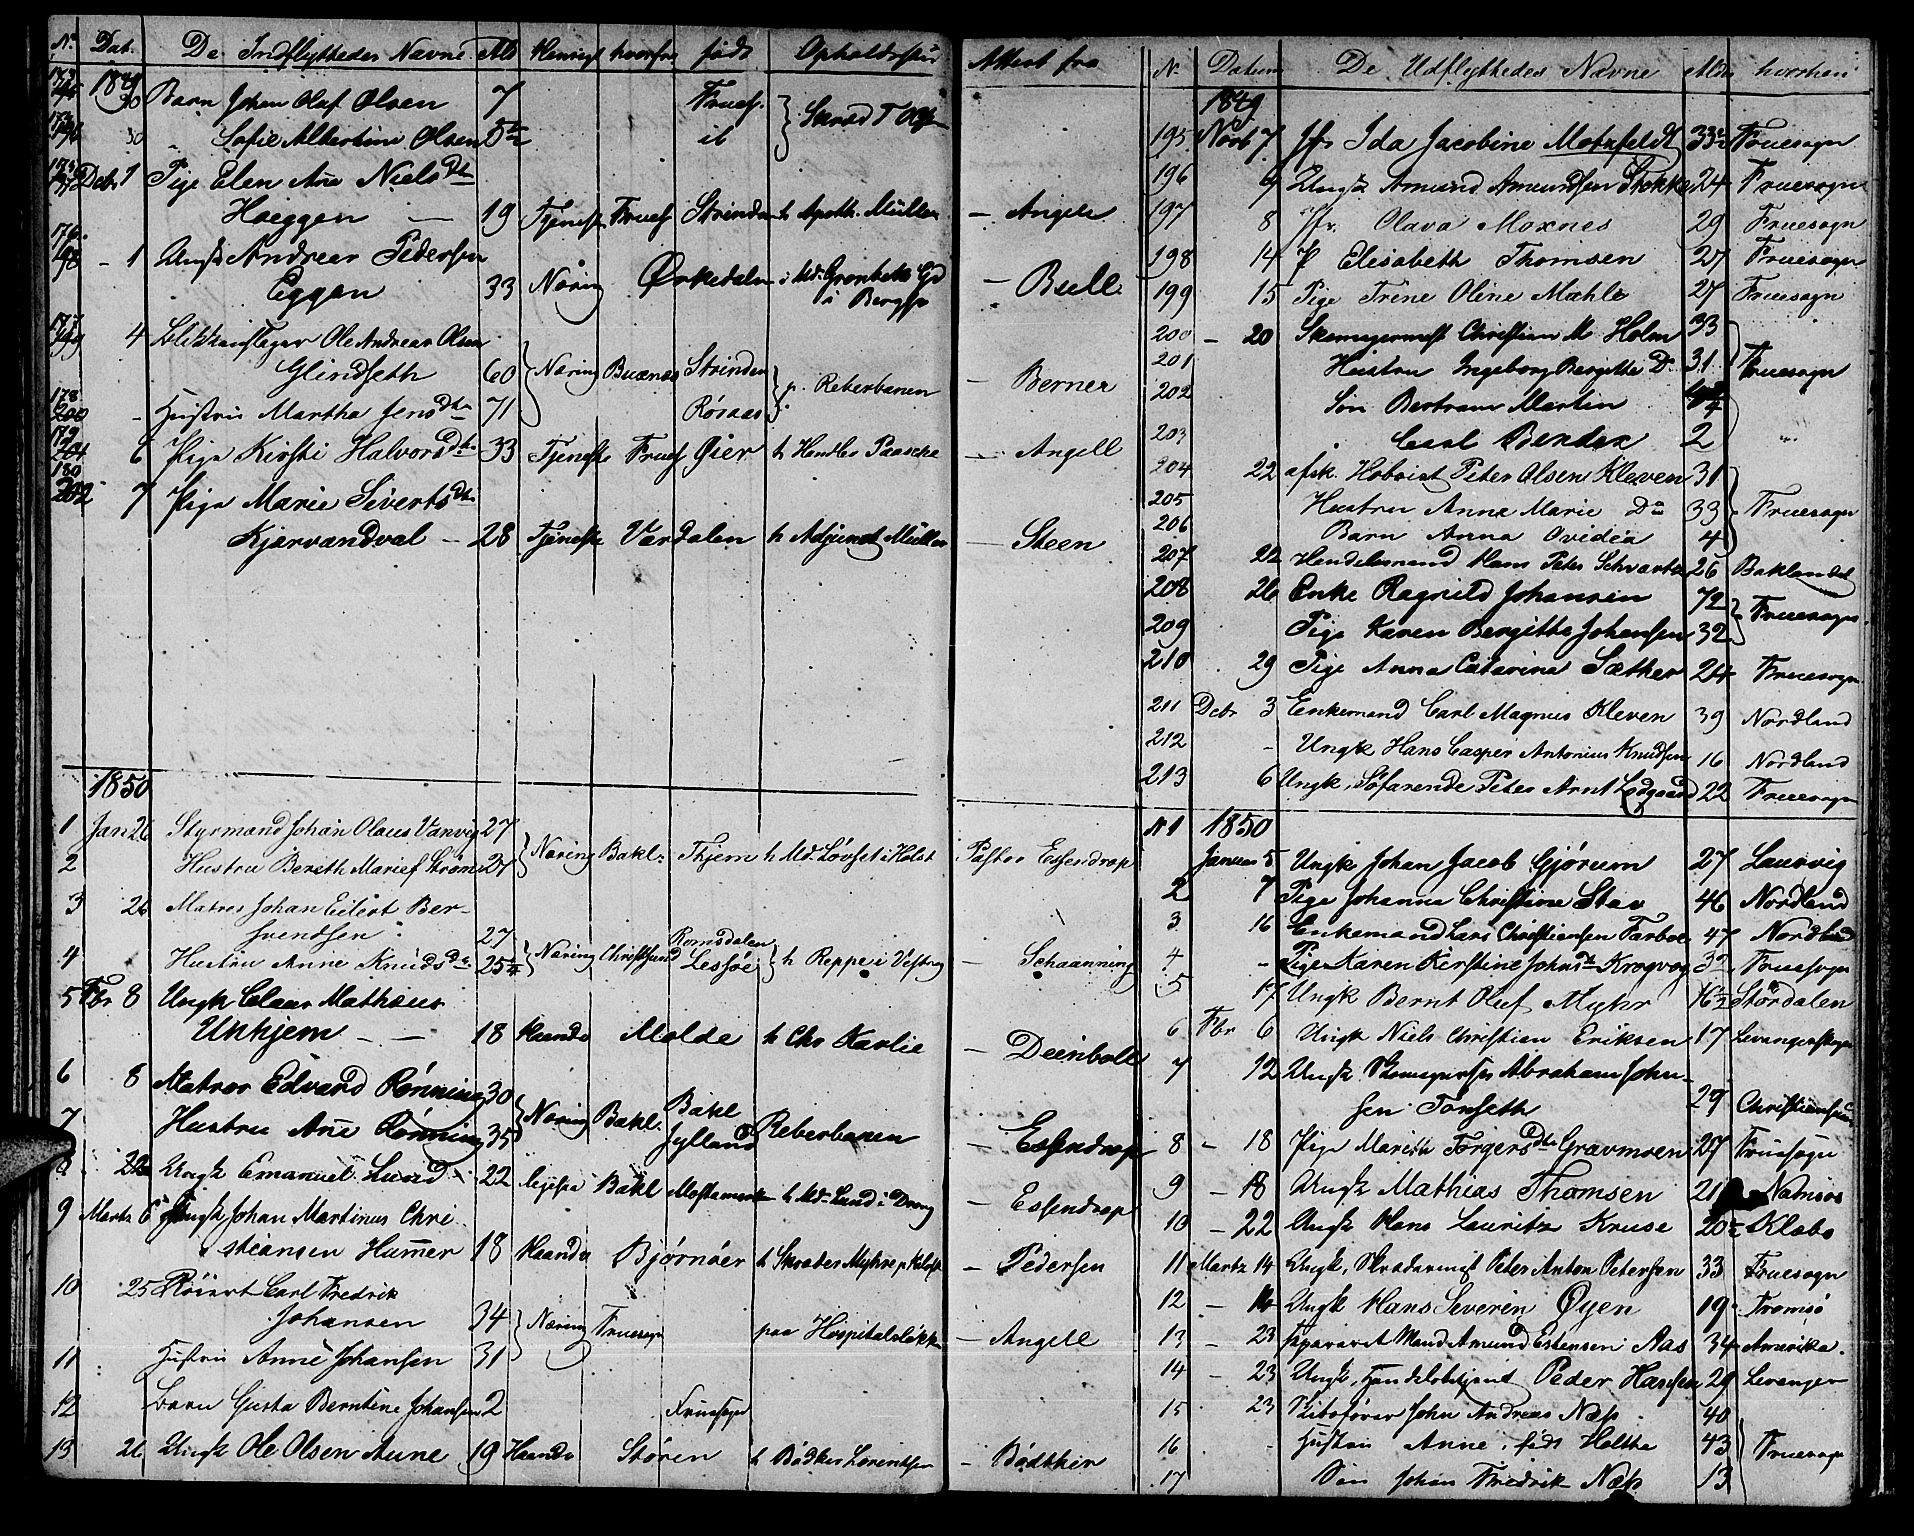 No. Dat. De Indflyttedes Navne Ald. hensigt hvorfra født Opholdssted Attest fra
1849
30 Barn Johan Olaf Olsen 7 Frues.
30 Sofie Albertine Olsen 5 ib
Debr 1 Pige Elen Ane Nielsdtr
Haeggen 19 Tjeneste Frues Strinden h Apoth. Müller — Angell
176 198 1 Ungk Andreas Pedersen
Eggen 33 Næring Ørkedalen — Bull
177 199 4 Blikkenslager Ole Andreas Olsen
Glindseth 60 Næring Baknæs Strinden p. Reberbanen — Berner
178 200 Hustru Martha Jensdtr 71 Røraas
179 201 6 Pige Kirsti Halvorsdtr 33 Tjeneste Frues Øier h Handlm Paasche — Angell
180 202 7 Pige Marie Sivertsdtr
Kjærvandval 28 Tjeneste Værdalen h Adjunct Müller — Steen
1850
1 Jan 26 Styrmand Johan Olaus Vanvig 27
2 Hustru Bereth Marie Strøm 27 Næring Bakl. Thjem h Md. Løvset i Holst Pastor Essendrop
3 26 Matros Johan Eilert Ber-
svendsen 27 Romsdalen
4 Hustru Anne Knudsdr 25 Næring Christsund Lessøe h Reppe i Vestreg — Schaanning
5 Fbr 8 Ungk Claus Mathæus
Unhjem — 18 Haandv Molde h Chr Karlie — Deinboll
6 8 Matros Edvard Rønning 30 Bakl
7 Hustru Ane Rønning 35 Næring Bakl. Jylland Reberbanen — Essendrop
8 22 Ungk Emanuel Lund 22 Bakl Mostamark h Md. Lund i Drong — Essendrop
9 Martz 6 Ungk Johan Martinus Chri
stiansen Hammer 18 Haandv Bjørnøer h Skræder Myhre p Kalvsk — Pedersen
10 25 Carl Fredrik
Johansen 34 Næring Fruesogn paa Hospitalsløkke — Angell
11 Hustru Anne Johansen 31
12 Barn Gusta Berntine Johansen 2 Fruesogn
13 26 Ungk Ole Olsen Aune 19 Haandv Støren h Bødker Lorentsen — Bødtker
No. Datum De Udflyttedes Navne Aldr. hvorhen
1849
195 Novb 7 Jfr Ida Jacobine Motzfeldt 33 Fruesogn
196 9 Ungk Amund Amundsen Stokke 24 Fruesogn
197 8 Jfr. Olava Moxnes 29 Fruesogn
198 14 P Elisabeth Thomsen 27 Fruesogn
199 15 Pige Trine Oline Mæhle 27 Fruesogn
200 — 20 Skomagermest Christian M Holm 33
201 Hustru Ingeborg Bergitte Do 31 Fruesogn
202 Søn Bertram Martin 4
203 Carl Bender 2 "
204 22 afsk. Hoboist Peter Olsen Kleven 31
205 Hustru Anna Marie Do 33 Fruesogn
206 Barn Anna Ovidia 4
207 22 Handelsmand Hans Peter Schvartz 26 Baklandet
208 26 Enke Ragnild Johansen 72 Fruesogn
209 Pige Karen Bergitte Johansen 32
210 29 Pige Anna Catarina Sæther 24 Fruesogn
211 Debr 3 Enkemand Carl Magnus Kleven 39 Nordland
212 - Ungk Hans Casper Antonius Knudsen 16 Nordland
213 6 Ungk. Søfarende Peter Arnt Lodgaard 22 Fruesogn
No 1 1850
Januar 5 Ungk Johan Jacob Gjørum 27 Laurvig
2 7 Pige Johanna Christine Stav 46 Nordland
3 16 Enkemand Lars Christiansen Farboe 47 Nordland
4 - Pige Karen Kirstine Johnsdtr Krogvog 32 Fruesogn
5 17 Ungk Bernt Oluf Myhr 16 1/2 Størdalen
6 Fbr 6 Ungk Niels Christian Eriksen 17 Levangerskogn
7 12 Ungk Skomagersv Abraham John-
sen Tonseth 29 Christianssund
8 — 18 Pige Marith Torgersdtr Grævmoen 27 Fruesogn
9 — 18 Ungk Mathias Thomsen 21 Namsos
10 — 22 Ungk Hans Lauritz Kruse 20 Klæbo
11 Martz 14 Ungk. Skrædersvend Peter Anton Petersen 33 Fruesogn
12 — 14 Ungk Hans Severin Øyen 19 Tromsø
13 — 23 Mand Amund Estensen Aas 34 Amerika.
14 — 23 Ungk. Handelsbetjent Peder Hansen 29 Levanger
15 23 Skibsfører John Andreas Næss 40
16 - Hustru Anne, født Holthe 43 Fruesogn
17 Søn Johan Fredrik Næss 13